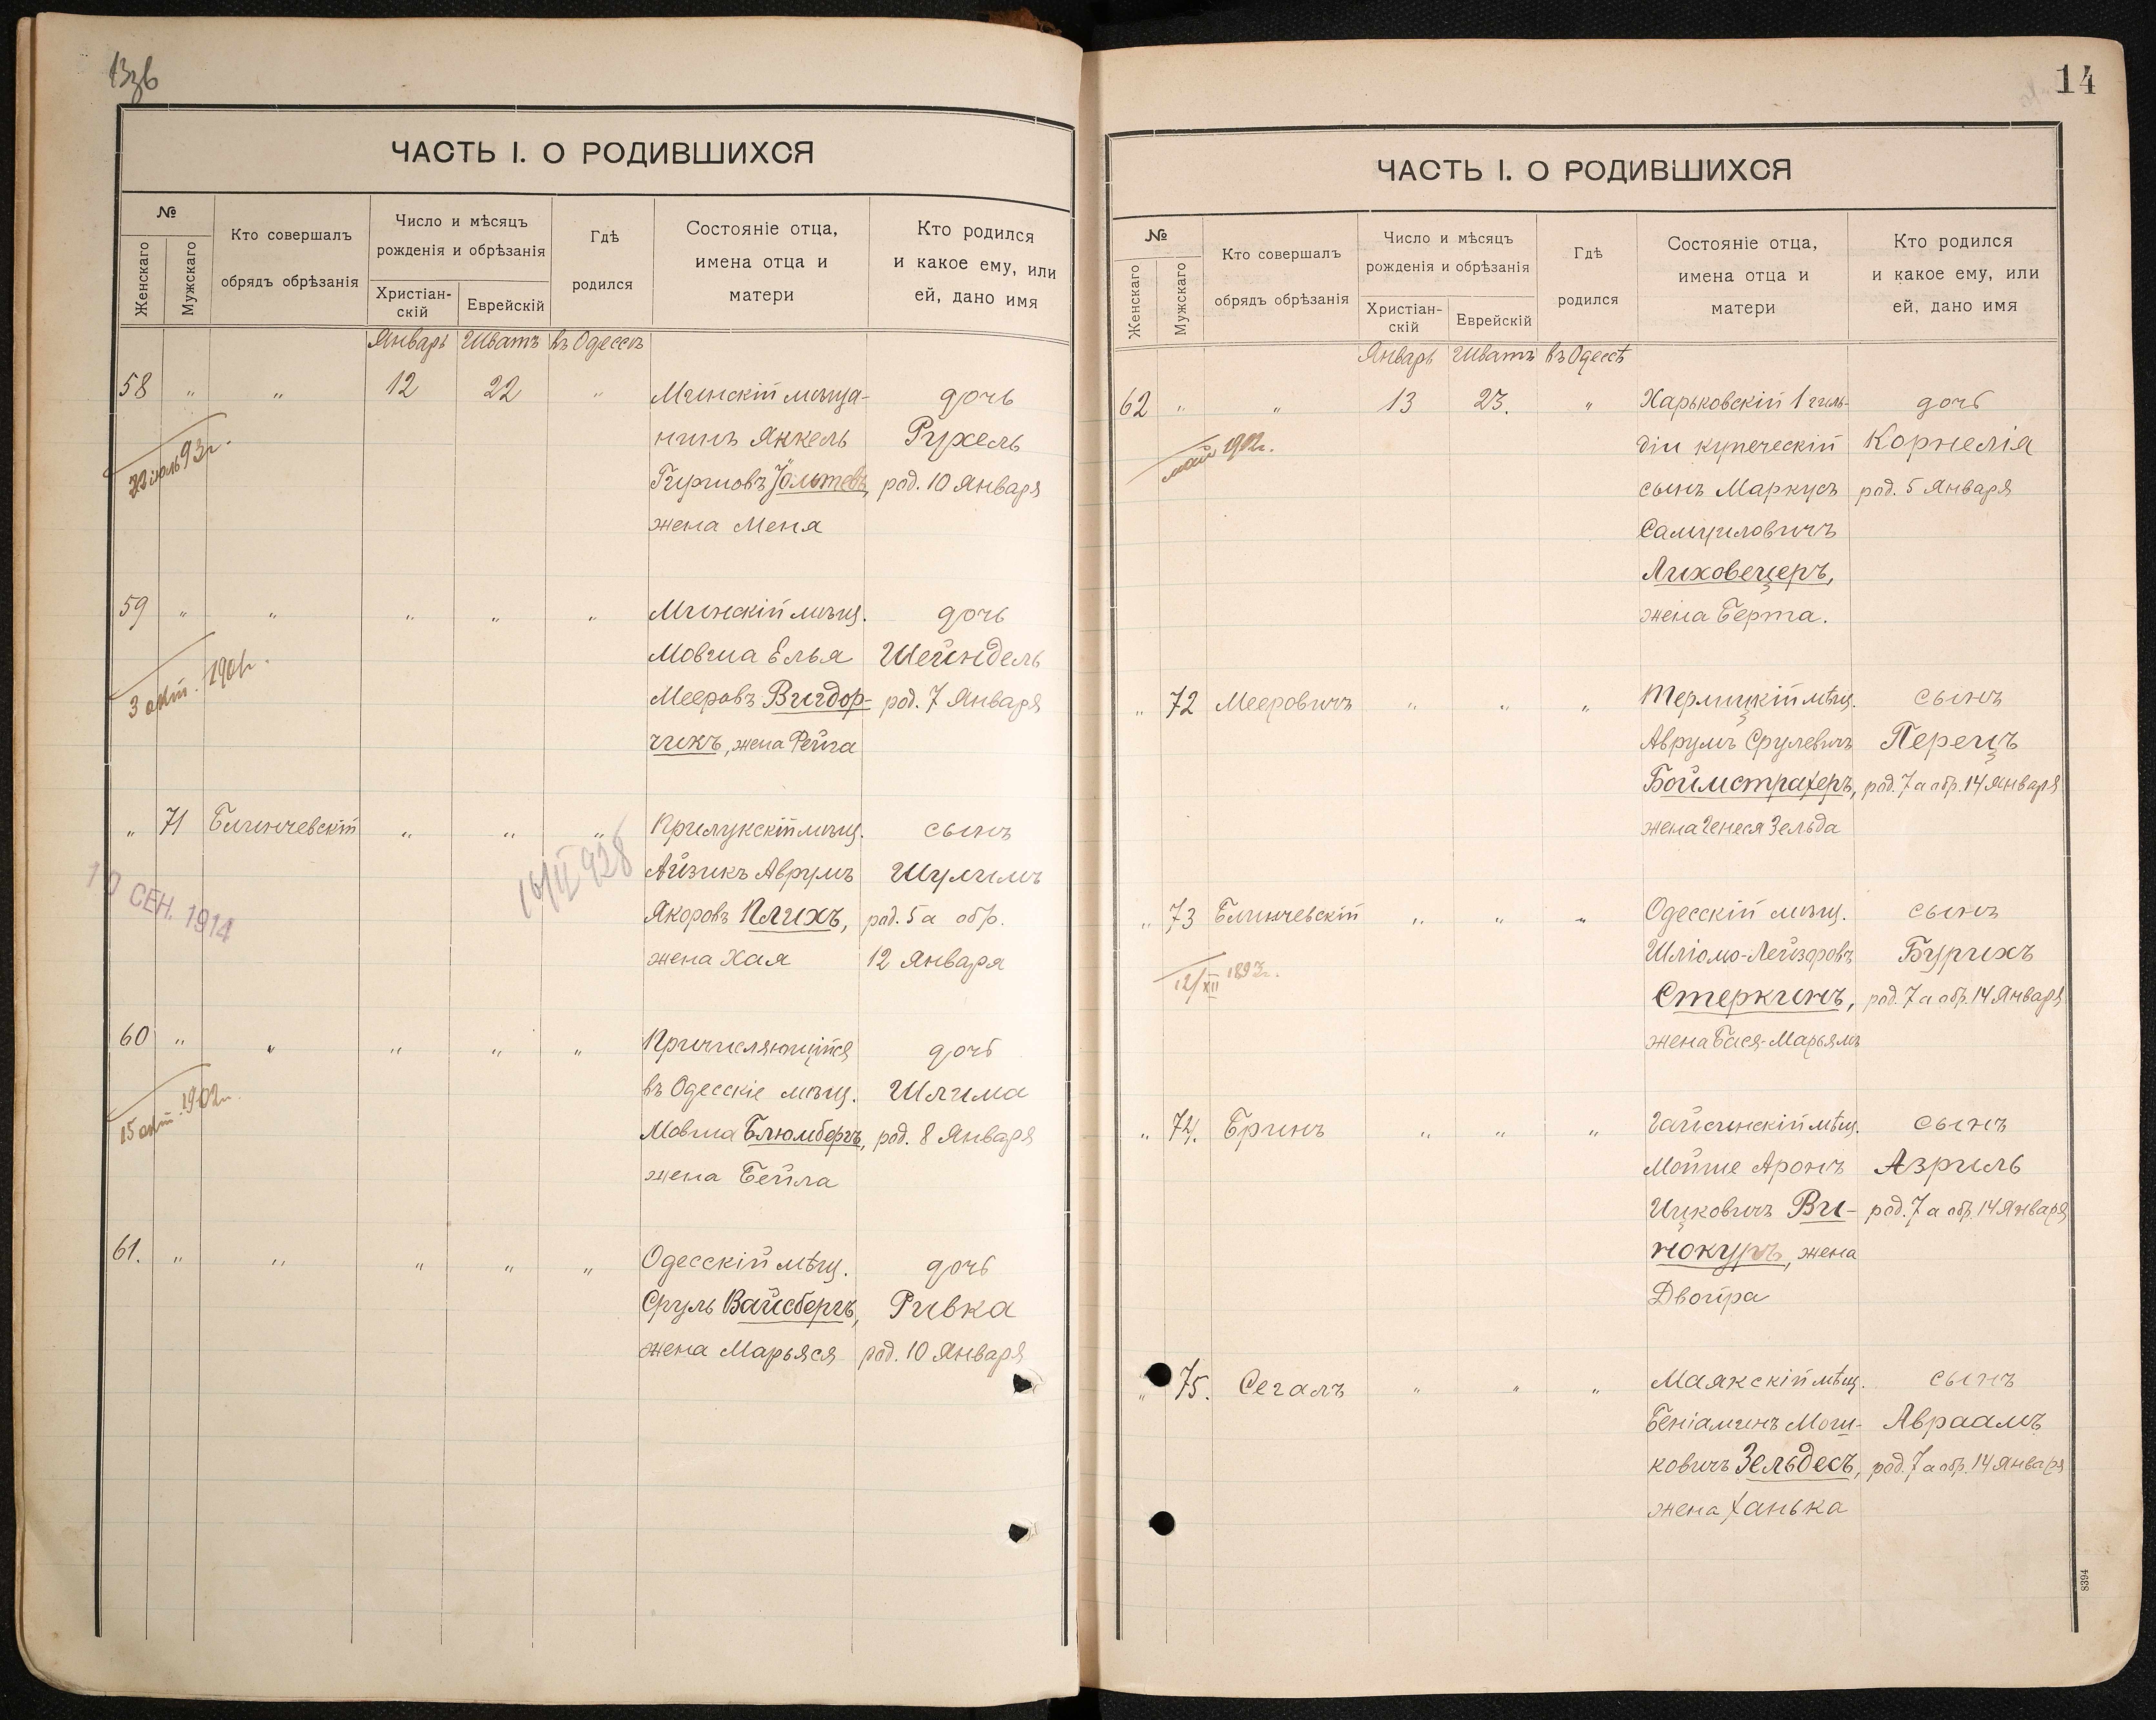 13зв
ЧАСТЬ I. О РОДИВШИХСЯ
№
Женскаго
Мужскаго
Кто совершалъ
обрядъ обрѣзанія
Число и мѣсяцъ
рожденія и обрѣзанія
Христіан-
скій
Еврейскій
Гдѣ
родился
Состояніе отца,
имена отца и
матери
Кто родился
и какое ему, или
ей, дано имя
Январь Шватъ въ Одессѣ
58 " " 12 22 " Минскій мѣща- дочь
нинъ Янкель Рухель
род. 10 Января
жена Меня
93г.
59 " " " " " Минскій мѣщ. дочь
Мовша Елья Шейндель
Мееровъ Вигдор- род. 7 Января
чикъ, жена Рейза
3 окт. 1901г.
" 71 Блинчевскій " " " Прилукскій мѣщ. сынъ
Айзикъ Аврумъ Шулимъ
Якоровъ Плихъ, род. 5 а обр.
жена Хая 12 Января
10 СЕН. 1914
16/II 928
60 " " " " " Причисляющійся дочь
въ Одесскіе мѣщ. Шлима
Мовша Блюмбергъ, род. 8 Января
жена Бейла
15 окт. 1902г.
61. " " " " " Одесскій мѣщ. дочь
Сруль Вайсбергъ, Ривка
жена Марьяся род. 10 Января
14
ЧАСТЬ I. О РОДИВШИХСЯ
№
Женскаго
Мужскаго
Кто совершалъ
обрядъ обрѣзанія
Число и мѣсяцъ
рожденія и обрѣзанія
Христіан-
скій
Еврейскій
Гдѣ
родился
Состояніе отца,
имена отца и
матери
Кто родился
и какое ему, или
ей, дано имя
Январь Шватъ въ Одессѣ
62 " " 13 23. " Харьковскій 1 гиль- дочь
діи купеческій Корнелія
сынъ Маркусъ род. 5 Января
Самуиловичъ
Лиховецеръ,
жена Берта.
май 1912г.
" 72 Мееровичъ " " " Терлицкій мѣщ. сынъ
Аврумъ Срулевичъ Перецъ
Боймстрахеръ, род. 7 а обр. 14 Января
жена Генеся Зельда
" 73 Блинчевскій " " " Одесскій мѣщ. сынъ
Шліомо-Лейзоровъ Бурихъ
Стеркинъ, род. 7 а обр. 14 Января
жена Бася-Марьямъ
12/XII 1893г.
" 74. Бринъ " " " Гайсинскій мѣщ. сынъ
Мойше Аронъ Азриль
Ицковичъ Ви- род. 7 а обр. 14 Января
нокуръ, жена
Двойра
" 75. Сегалъ " " " Маякскій мѣщ. сынъ
Беніаминъ Мош- Авраамъ
ковичъ Зельдесъ, род. 7 а обр. 14 Января
жена Ханька
8394